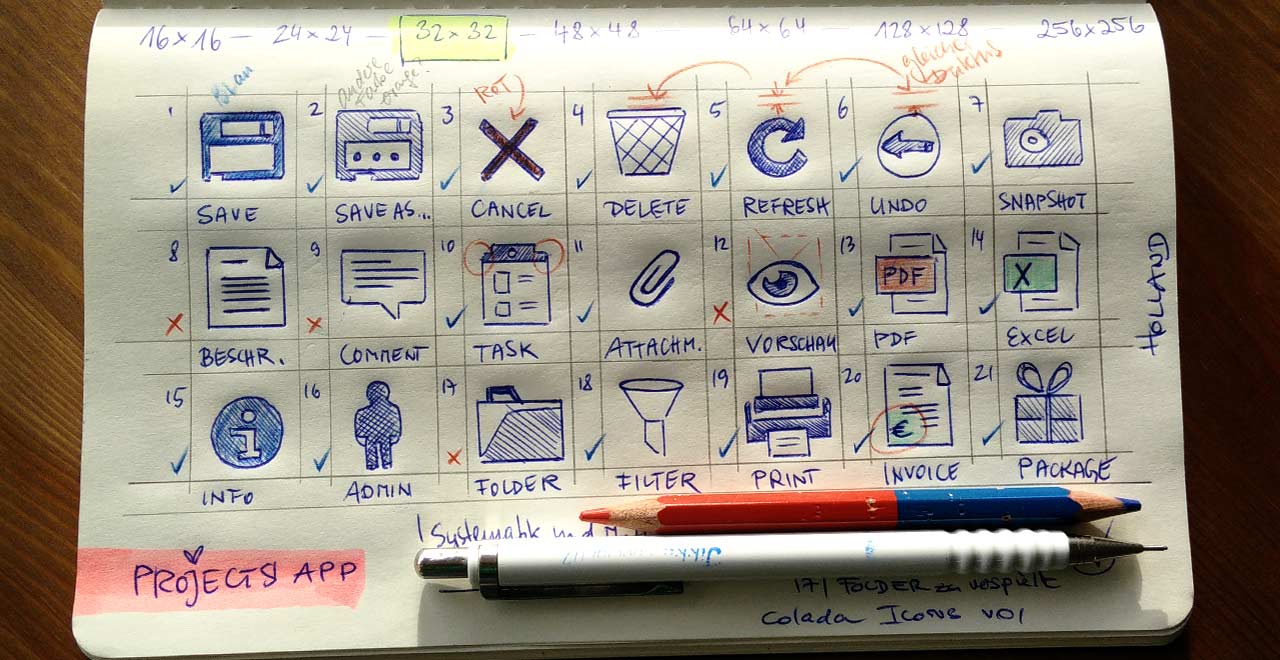 16×16 — 24×24 — 32×32 — 48×48 — 64×64 — 128×128 — 256×256
Blau
andere Farbe Orange?
ROT
gleicher
1 2 3 4 5 6 7
SAVE SAVE AS... CANCEL DELETE REFRESH UNDO SNAPSHOT
8 9 10 11 12 13 14
PDF X
BESCHR. COMMENT TASK ATTACHM. VORSCHAU PDF EXCEL
HOLLAND
15 16 17 18 19 20 21
i €
INFO ADMIN FOLDER FILTER PRINT INVOICE PACKAGE
Systematik und
PROJECTS APP
17/ FOLDER zu verspielt
Colada Icons V01